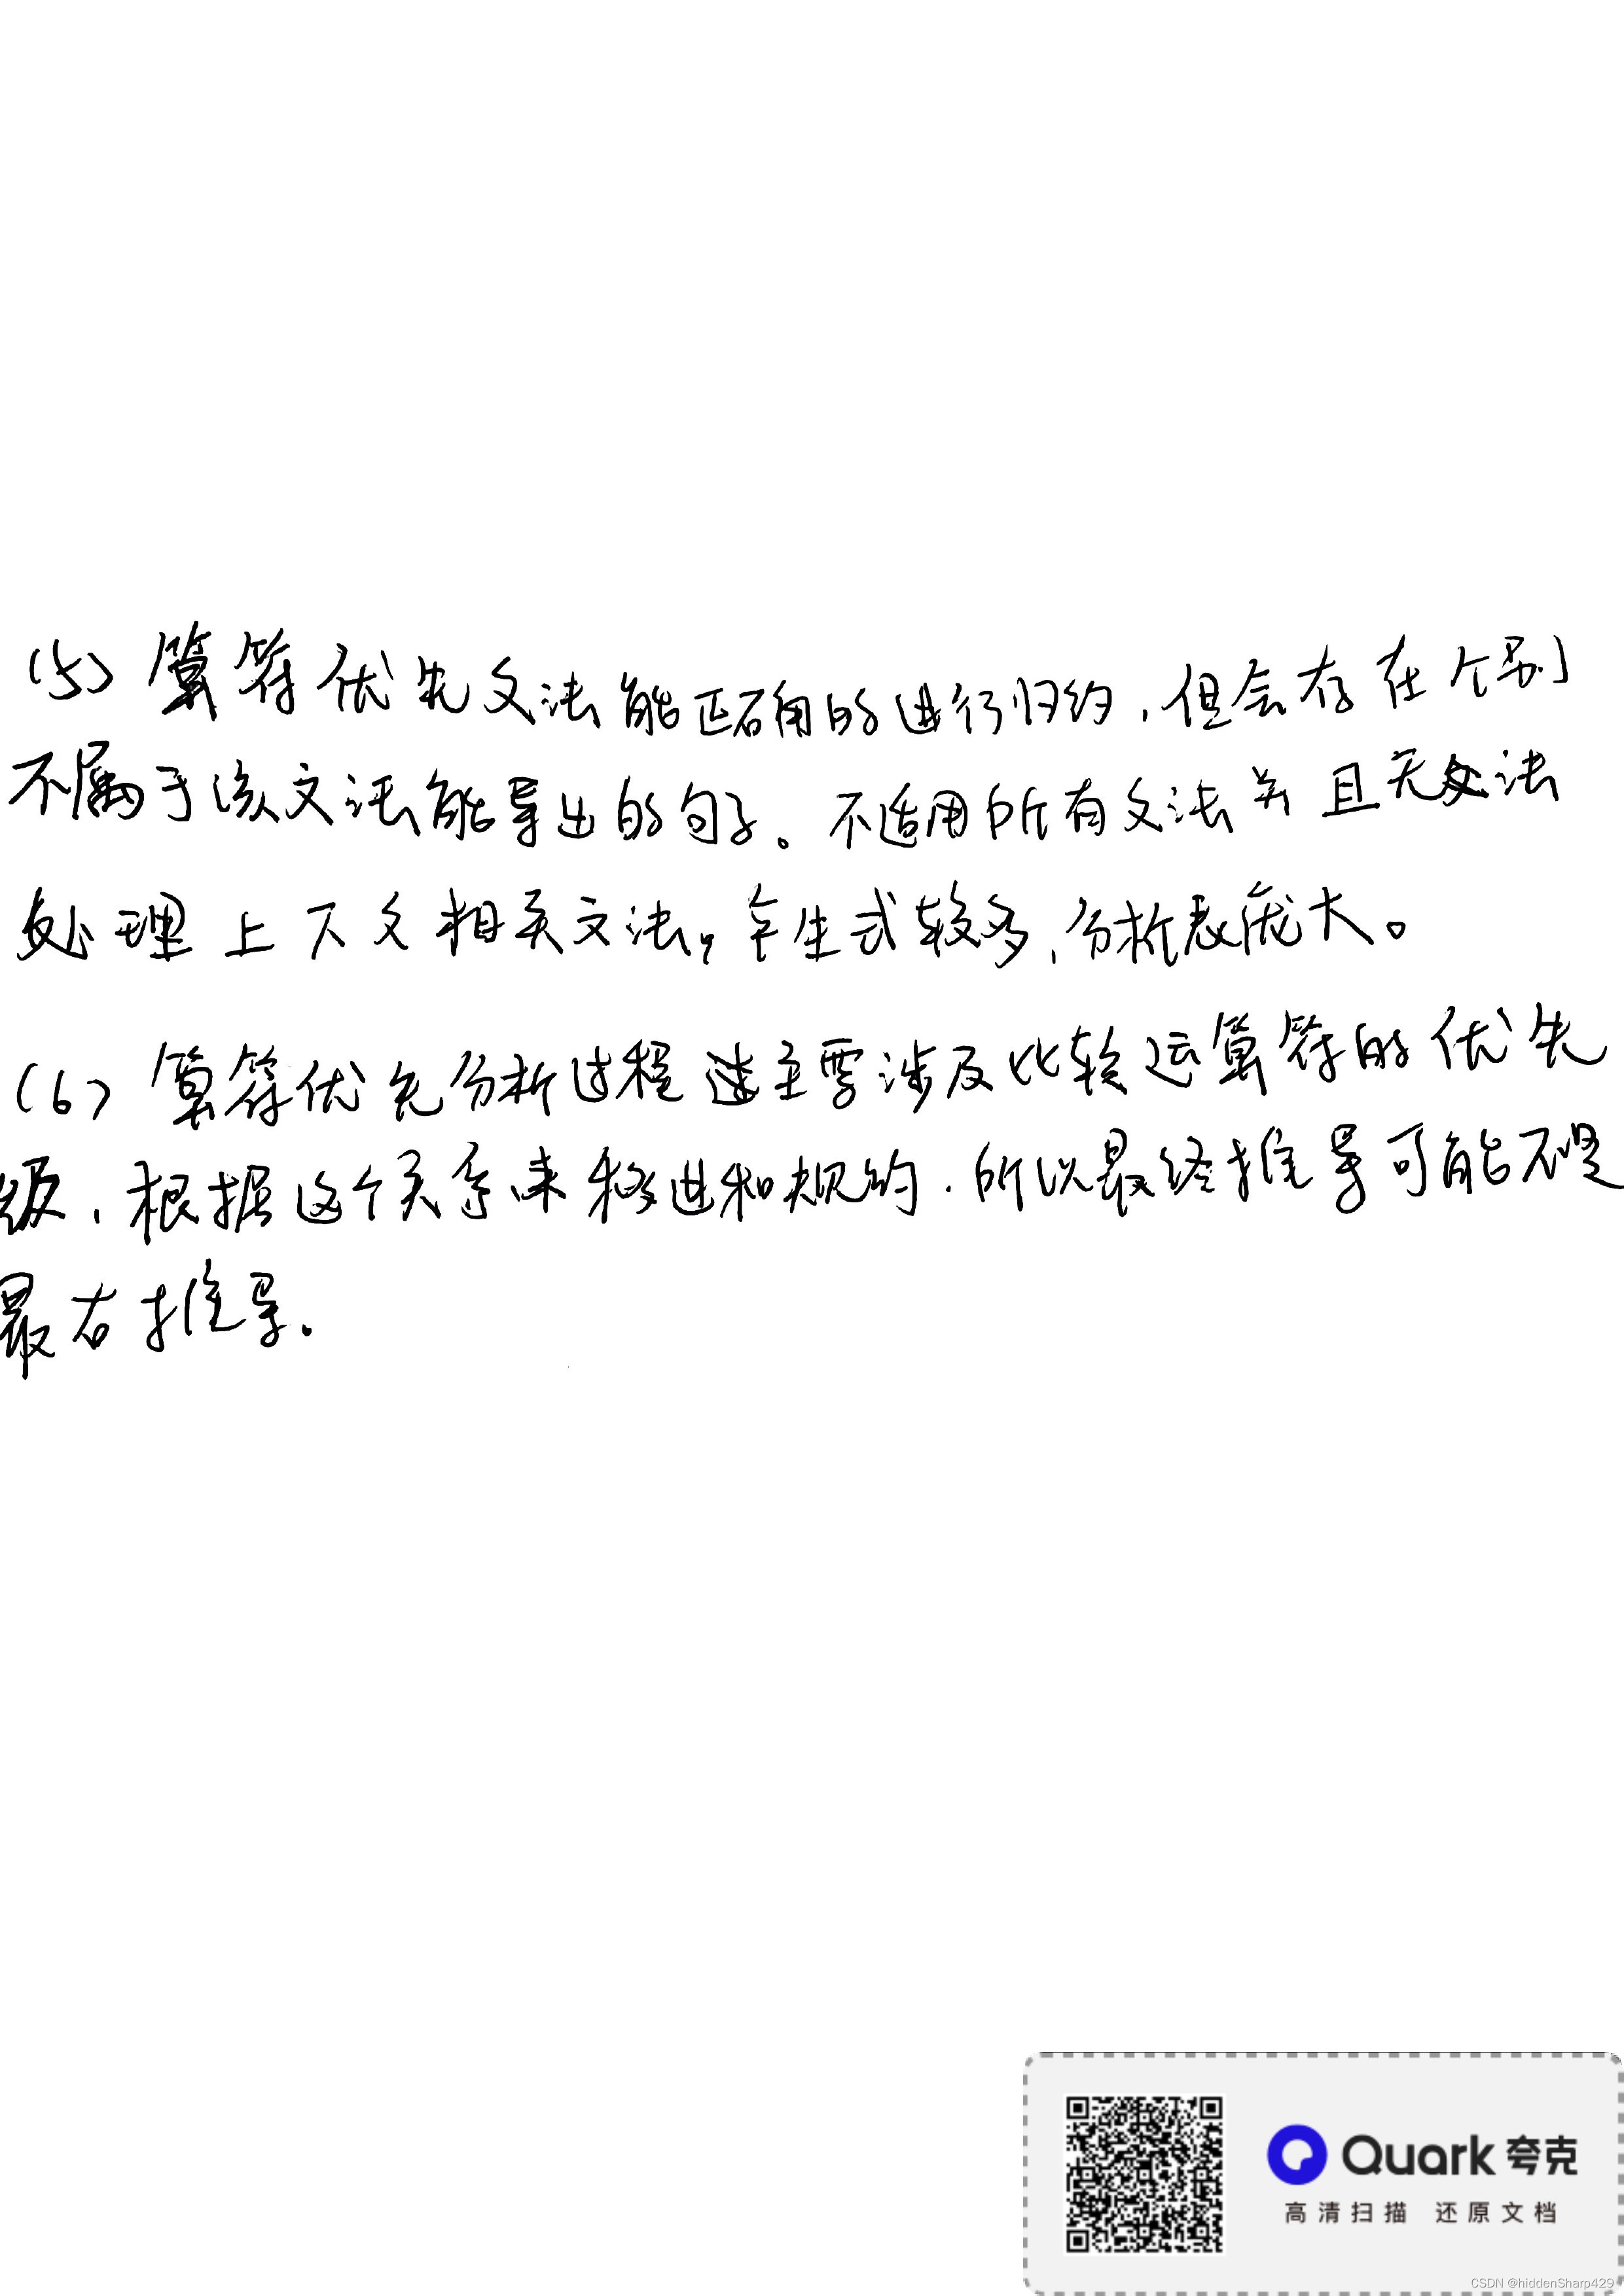 (5) 算符优先文法能正确的进行归约，但会存在个别
不属于该文法能导出的句子。不适用所有文法并且无法
处理上下文相关文法，产生式较多，分析表庞大。
(6) 算符优先分析过程主要涉及比较运算符的优先
级，根据这个关系来移进和规约．所以最终推导可能不是
最右推导．
Quark 夸克
高清扫描 还原文档
CSDN @hiddenSharp429